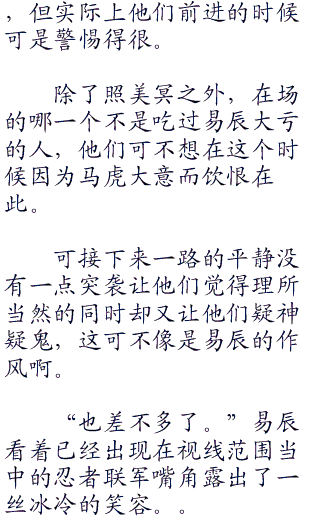 ，但实际上他们前进的时候
可是警惕得很。
除了照美冥之外，在场
的哪一个不是吃过易辰大亏
的人，他们可不想在这个时
候因为马虎大意而饮恨在
此。
可接下来一路的平静没
有一点突袭让他们觉得理所
当然的同时却又让他们疑神
疑鬼，这可不像是易辰的作
风啊。
“也差不多了。”易辰
看着已经出现在视线范围当
中的忍者联军嘴角露出了一
丝冰冷的笑容。。